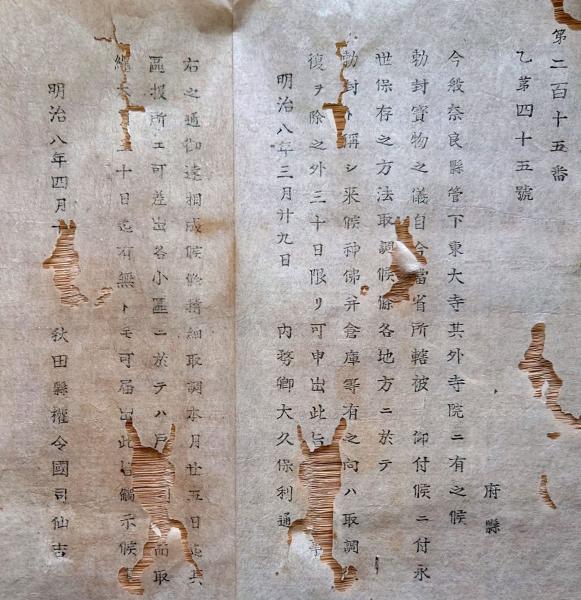 第二百十五番
乙第四十五號
府縣
今般奈良縣管下東大寺其外寺院ニ有之候
勅封寳物之儀自今當省所轄被 仰付候ニ付永
世保存之方法取調候條各地方ニ於テ
勅封ト稱シ來候神佛并倉庫等有之向ハ取調
復ヲ除之外三十日限リ可申出此旨
明治八年三月廿九日 內務卿大久保利通
右之通御達相成候條精細取調本月廿五日迄其
區扱所エ可差出各小區ニ於テハ戶 而取
十日迄有無トモ可届出此旨觸示候
明治八年四月 秋田縣權令國司仙吉